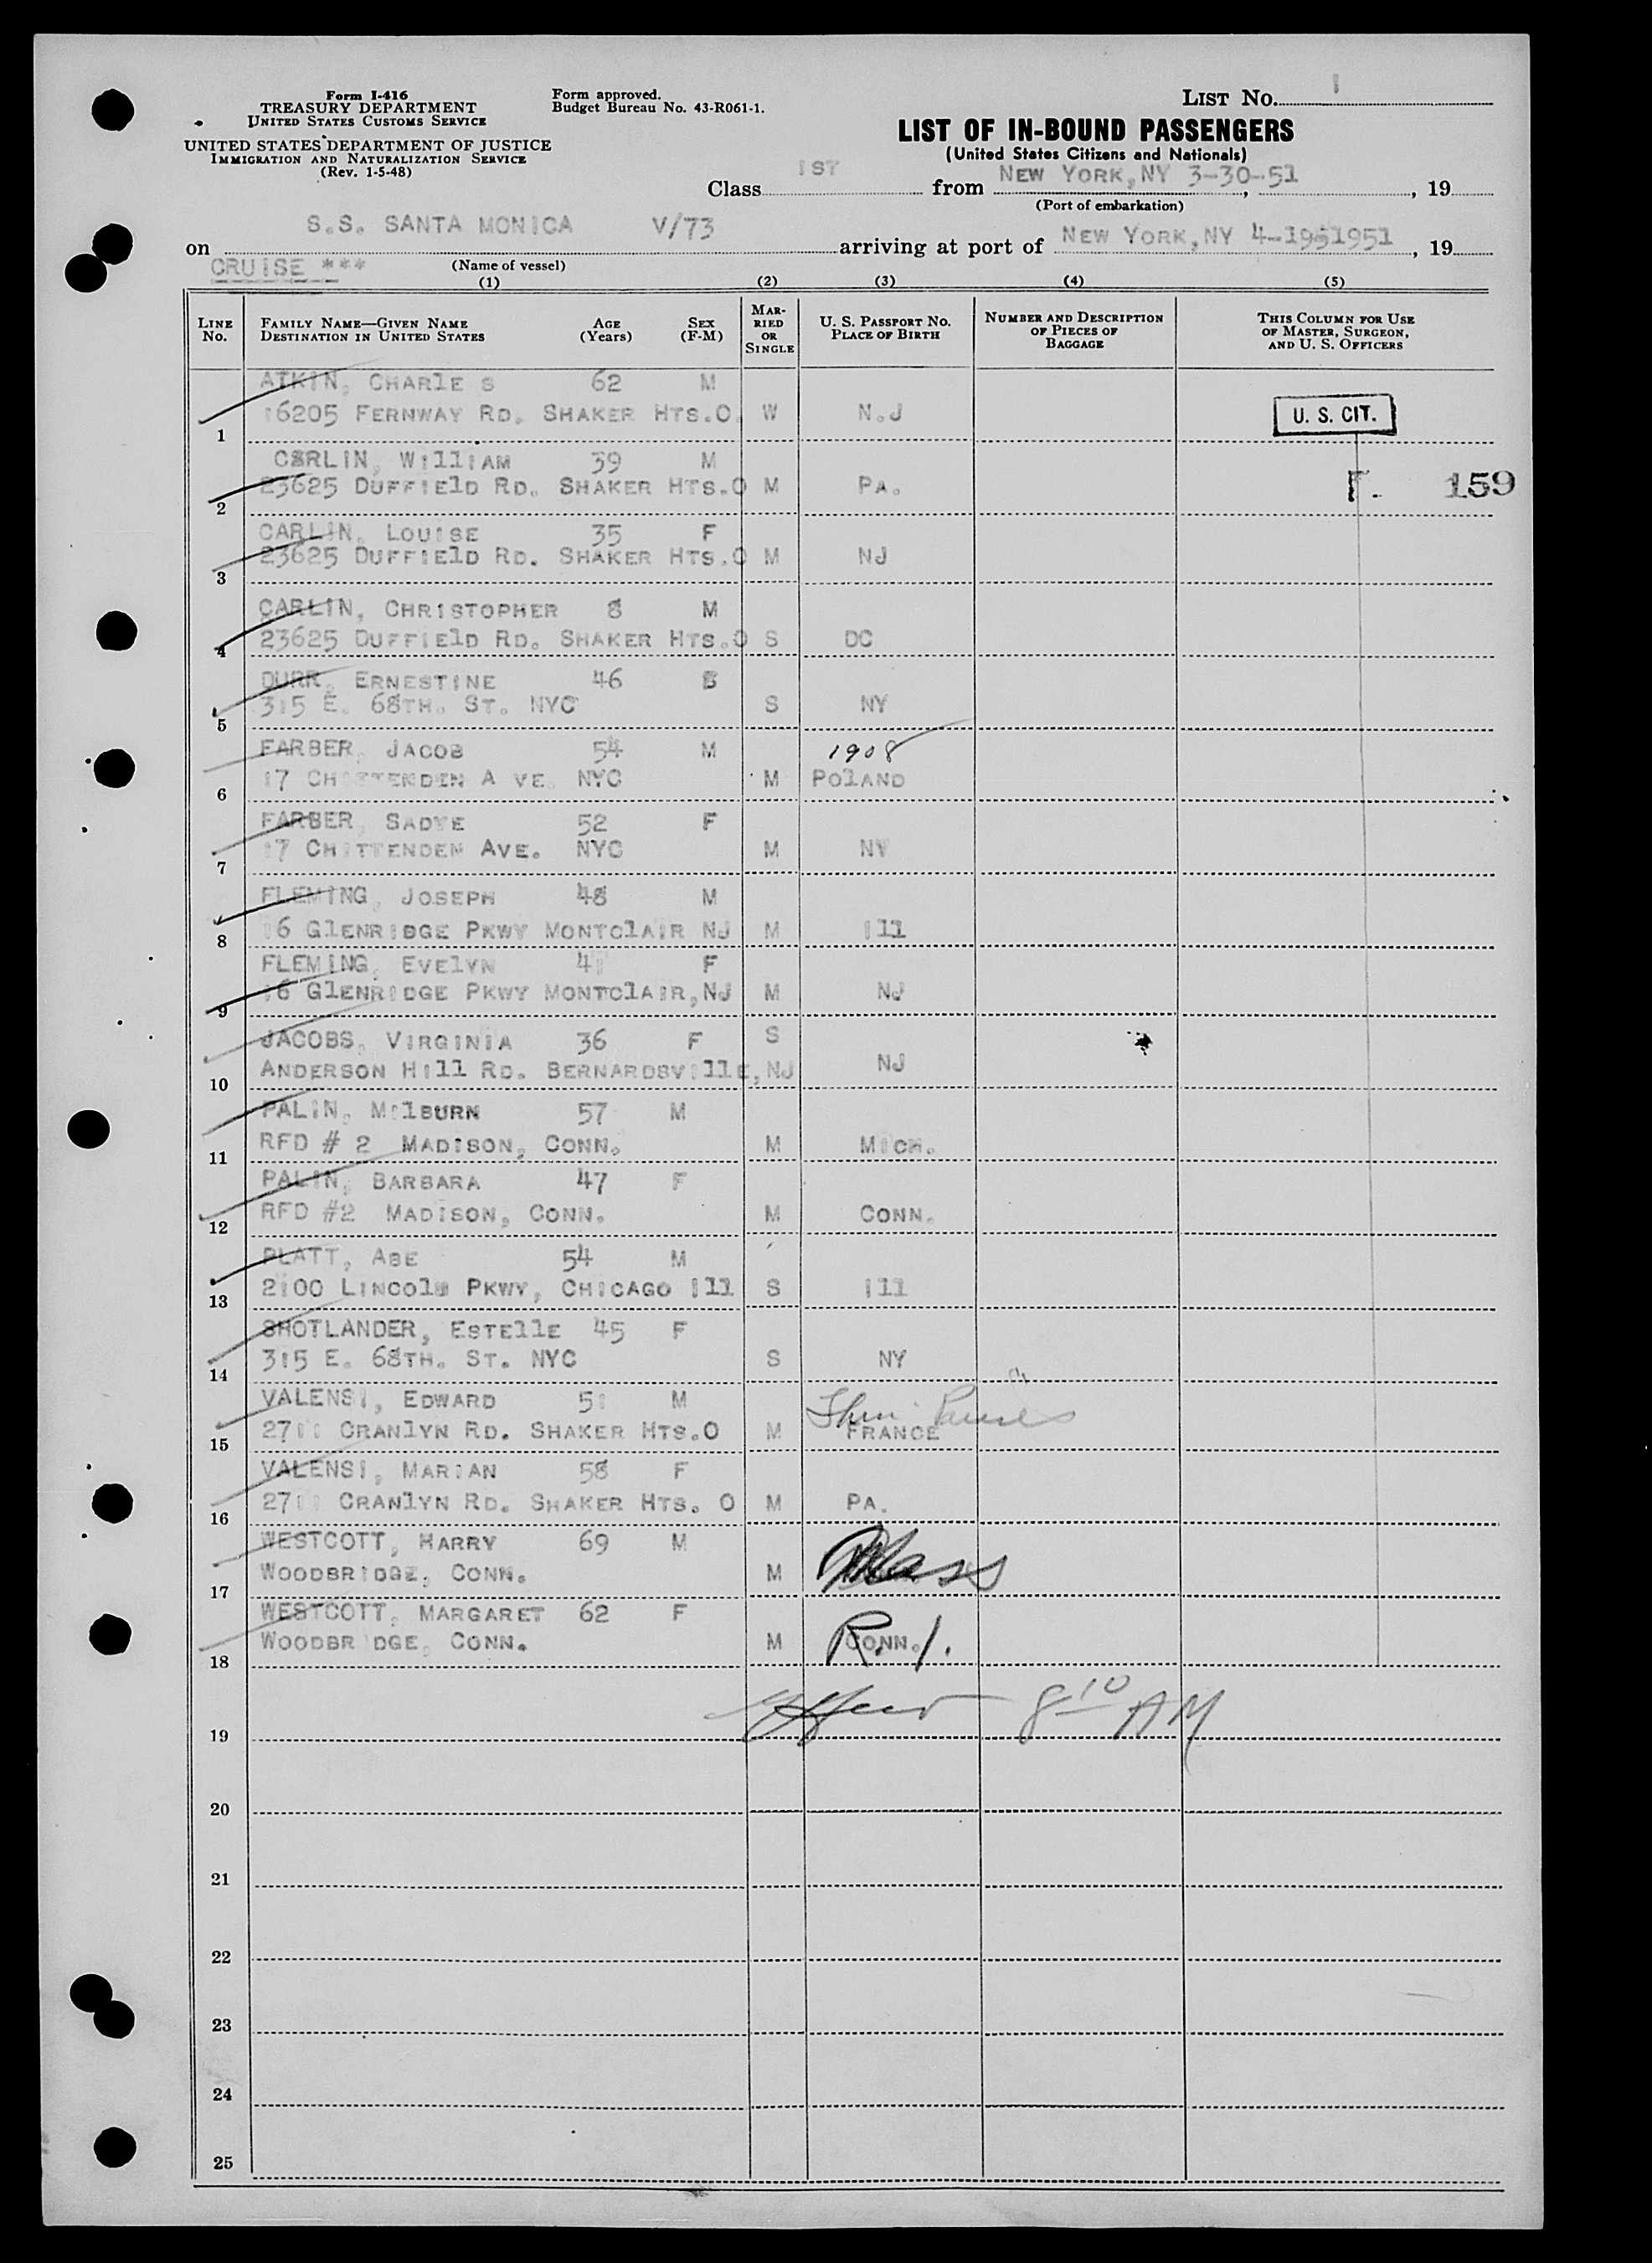 Form I-416
TREASURY DEPARTMENT
UNITED STATES CUSTOMS SERVICE
UNITED STATES DEPARTMENT OF JUSTICE
IMMIGRATION AND NATURALIZATION SERVICE
(Rev. 1-5-48)
Form approved.
Budget Bureau No. 43-R061-1.
LIST NO. 1
LIST OF IN-BOUND PASSENGERS
(United States Citizens and Nationals)
Class 1ST from NEW YORK, NY 3-30-51, 19
(Port of embarkation)
on S.S. SANTA MONICA V/73 arriving at port of NEW YORK, NY 4-1951951, 19
CRUISE *** (Name of vessel)
(1) (2) (3) (4) (5)
LINE No. FAMILY NAME—GIVEN NAME DESTINATION IN UNITED STATES AGE (Years) SEX (F-M) MARRIED OR SINGLE U. S. PASSPORT NO. PLACE OF BIRTH NUMBER AND DESCRIPTION OF PIECES OF BAGGAGE THIS COLUMN FOR USE OF MASTER, SURGEON, AND U. S. OFFICERS
ATKIN, CHARLES 62 M
1 16205 FERNWAY RD. SHAKER HTS.O. W N.J U. S. CIT.
CARLIN, WILLIAM 39 M
2 23625 DUFFIELD RD. SHAKER HTS.O M PA. 159
CARLIN, LOUISE 35 F
3 23625 DUFFIELD RD. SHAKER HTS.O M NJ
CARLIN, CHRISTOPHER 8 M
4 23625 DUFFIELD RD. SHAKER HTS.O S DC
DURR, ERNESTINE 46
5 315 E. 68TH. ST. NYC S NY
FARBER, JACOB 54 M 1908
6 17 CHITTENDEN A VE. NYC M POLAND
FARBER, SADYE 52 F
7 17 CHITTENDEN AVE. NYC M NY
FLEMING, JOSEPH 48 M
8 16 GLENRIDGE PKWY MONTCLAIR NJ M ILL
FLEMING, EVELYN 41 F
9 16 GLENRIDGE PKWY MONTCLAIR, NJ M NJ
JACOBS, VIRGINIA 36 F S
10 ANDERSON HILL RD. BERNARDSVILLE, NJ NJ
PALIN, MILBURN 57 M
11 RFD # 2 MADISON, CONN. M MICH.
PALIN, BARBARA 47 F
12 RFD #2 MADISON, CONN. M CONN.
PLATT, ABE 54 M
13 2100 LINCOLN PKWY, CHICAGO ILL S ILL
SHOTLANDER, ESTELLE 45 F
14 315 E. 68TH. ST. NYC S NY
VALENSI, EDWARD 51 M
15 2711 CRANLYN RD. SHAKER HTS.O M FRANCE
VALENSI, MARIAN 58 F
16 2711 CRANLYN RD. SHAKER HTS. O M PA.
WESTCOTT, HARRY 69 M
17 WOODBRIDGE, CONN. M Mass
WESTCOTT, MARGARET 62 F
18 WOODBRIDGE, CONN. M CONN. R.I.
19 8 10 AM
20
21
22
23
24
25